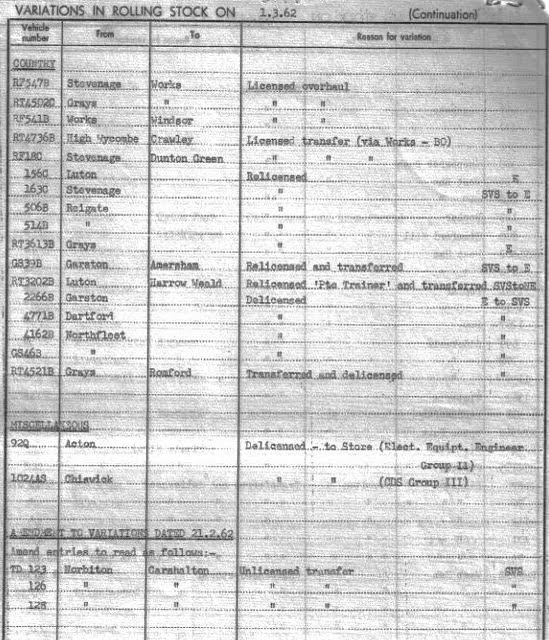 VARIATIONS IN ROLLING STOCK ON 1.3.62 (Continuation)
Vehicle number From To Reason for variation
COUNTRY
RF547B Stevenage Works Licensed overhaul
RT4502C Grays " " "
RF541B Works Windsor " "
RT4736B High Wycombe Crawley Licensed transfer (via Works - BO)
RF180 Stevenage Dunton Green " " "
1560 Luton Relicensed E
1630 Stevenage " SVS to E
506B Reigate " "
514B " " "
RT3613B Grays " E
GS39B Garston Amersham Relicensed and transferred SVS to E
RT3202B Luton Harrow Weald Relicensed 'Pte Trainer' and transferred SVStoUE
2266B Garston Delicensed E to SVS
4771B Dartford " "
4162B Northfleet " "
GS46B " " "
RT4521B Grays Romford Transferred and delicensed "
MISCELLANEOUS
92Q Acton Delicensed - to Store (Elect. Equipt. Engineer
Group II)
Chiswick " " (CDS Group III)
AMENDMENT TO VARIATIONS DATED 21.2.62
Amend entries to read as follows:-
TD 123 Norbiton Carshalton Unlicensed transfer SVS
126 " " " " "
128 " " " " "